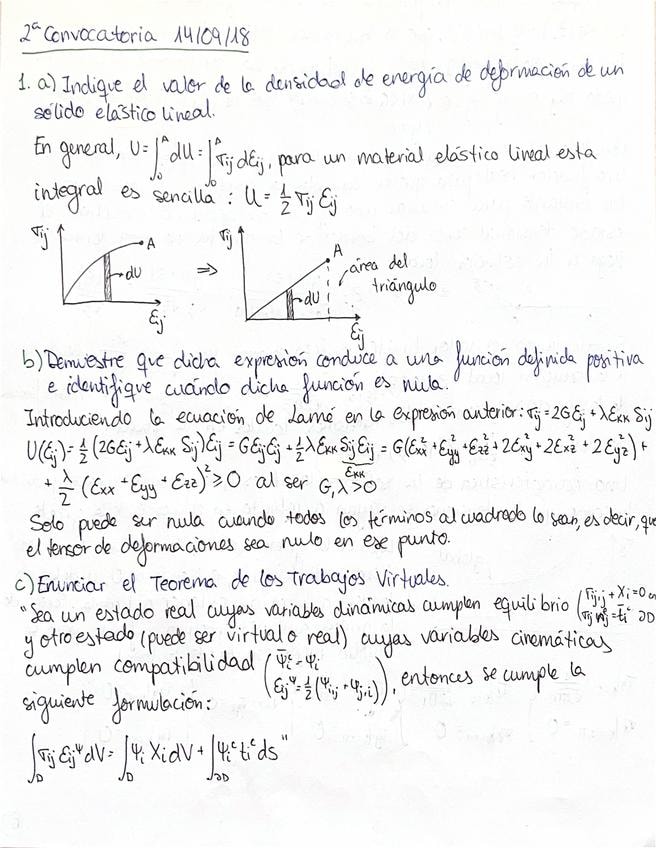 2ª Convocatoria 14/09/18
1. a) Indique el valor de la densidad de energía de deformación de un
sólido elástico lineal.
En general, U=∫₀ᴬ dU=∫₀ᴬ σij dεij, para un material elástico lineal esta
integral es sencilla: U= 1/2 σij εij
σij A dU εij
⇒ σij A dU εij área del
triángulo
b) Demuestre que dicha expresión conduce a una función definida positiva
e identifique cuándo dicha función es nula.
Introduciendo la ecuación de Lamé en la expresión anterior: σij=2Gεij+λεkk δij
U(εij)= 1/2 (2Gεij+λεkk δij)εij = Gεijεij+ 1/2 λεkk δijεij = G(εxx²+εyy²+εzz²+2εxy²+2εxz²+2εyz²)+
εkk
+ λ/2 (εxx+εyy+εzz)² ≥0 al ser G,λ>0
Solo puede ser nula cuando todos los términos al cuadrado lo sean, es decir, que
el tensor de deformaciones sea nulo en ese punto.
c) Enunciar el Teorema de los Trabajos Virtuales.
"Sea un estado real cuyas variables dinámicas cumplen equilibrio (σij,j+Xi=0 σij nj=ti^c ∂D
y otro estado (puede ser virtual o real) cuyas variables cinemáticas
cumplen compatibilidad (ψ̄i^c=ψi εij^ψ= 1/2 (ψi,j+ψj,i)), entonces se cumple la
siguiente formulación:
∫D σij εij^ψ dV= ∫D ψi Xi dV+ ∫∂D ψi^c ti^c ds"